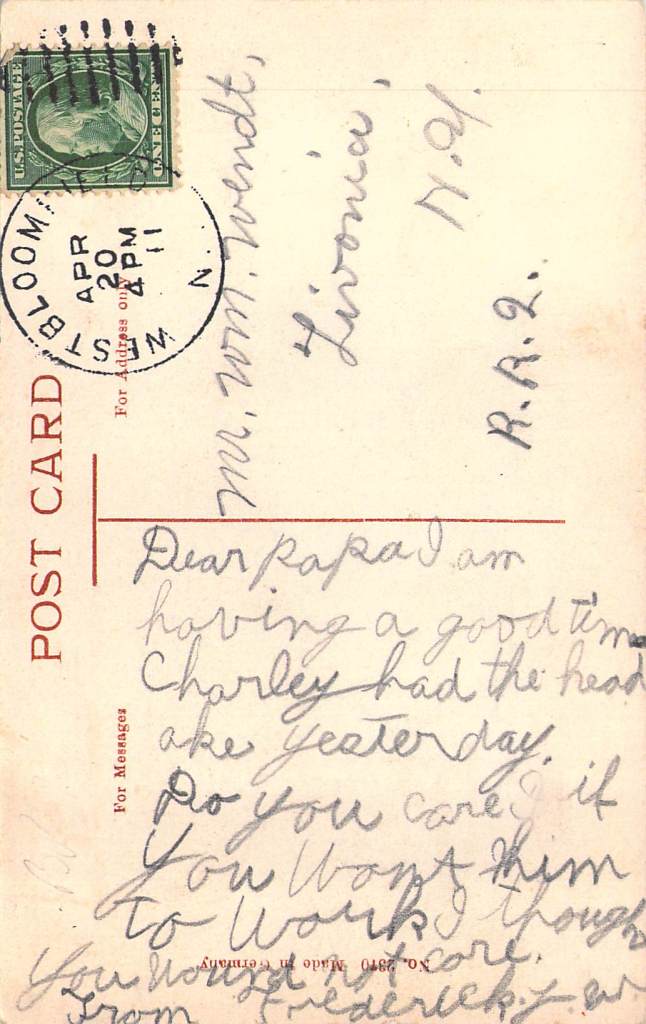 U.S. POSTAGE
ONE CENT
WEST BLOOMFIELD
APR
20
4 PM
11
N.
POST CARD
For Address only
Mr. Wm. Wendt,
Livonia,
N. Y.
R. R. 2.
For Messages
Dear papa I am
having a good time
Charley had the head
ake yesterday.
Do you care if
you want him
to work I though
you would not care.
From Frederick J. W.
No. 2370 Made in Germany